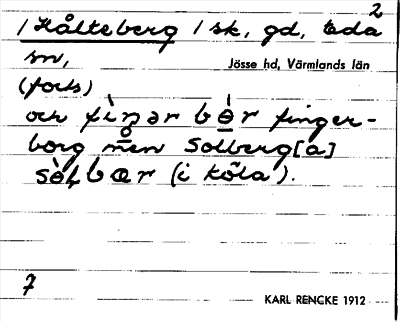 2
/ Kålteberg / sk, gd, Eda
sn,
Jösse hd, Värmlands län
(forts)
och fìŋər bə̀r finger-
borg men Solberg[a]
sòļbær (i Köla).
7
KARL RENCKE 1912